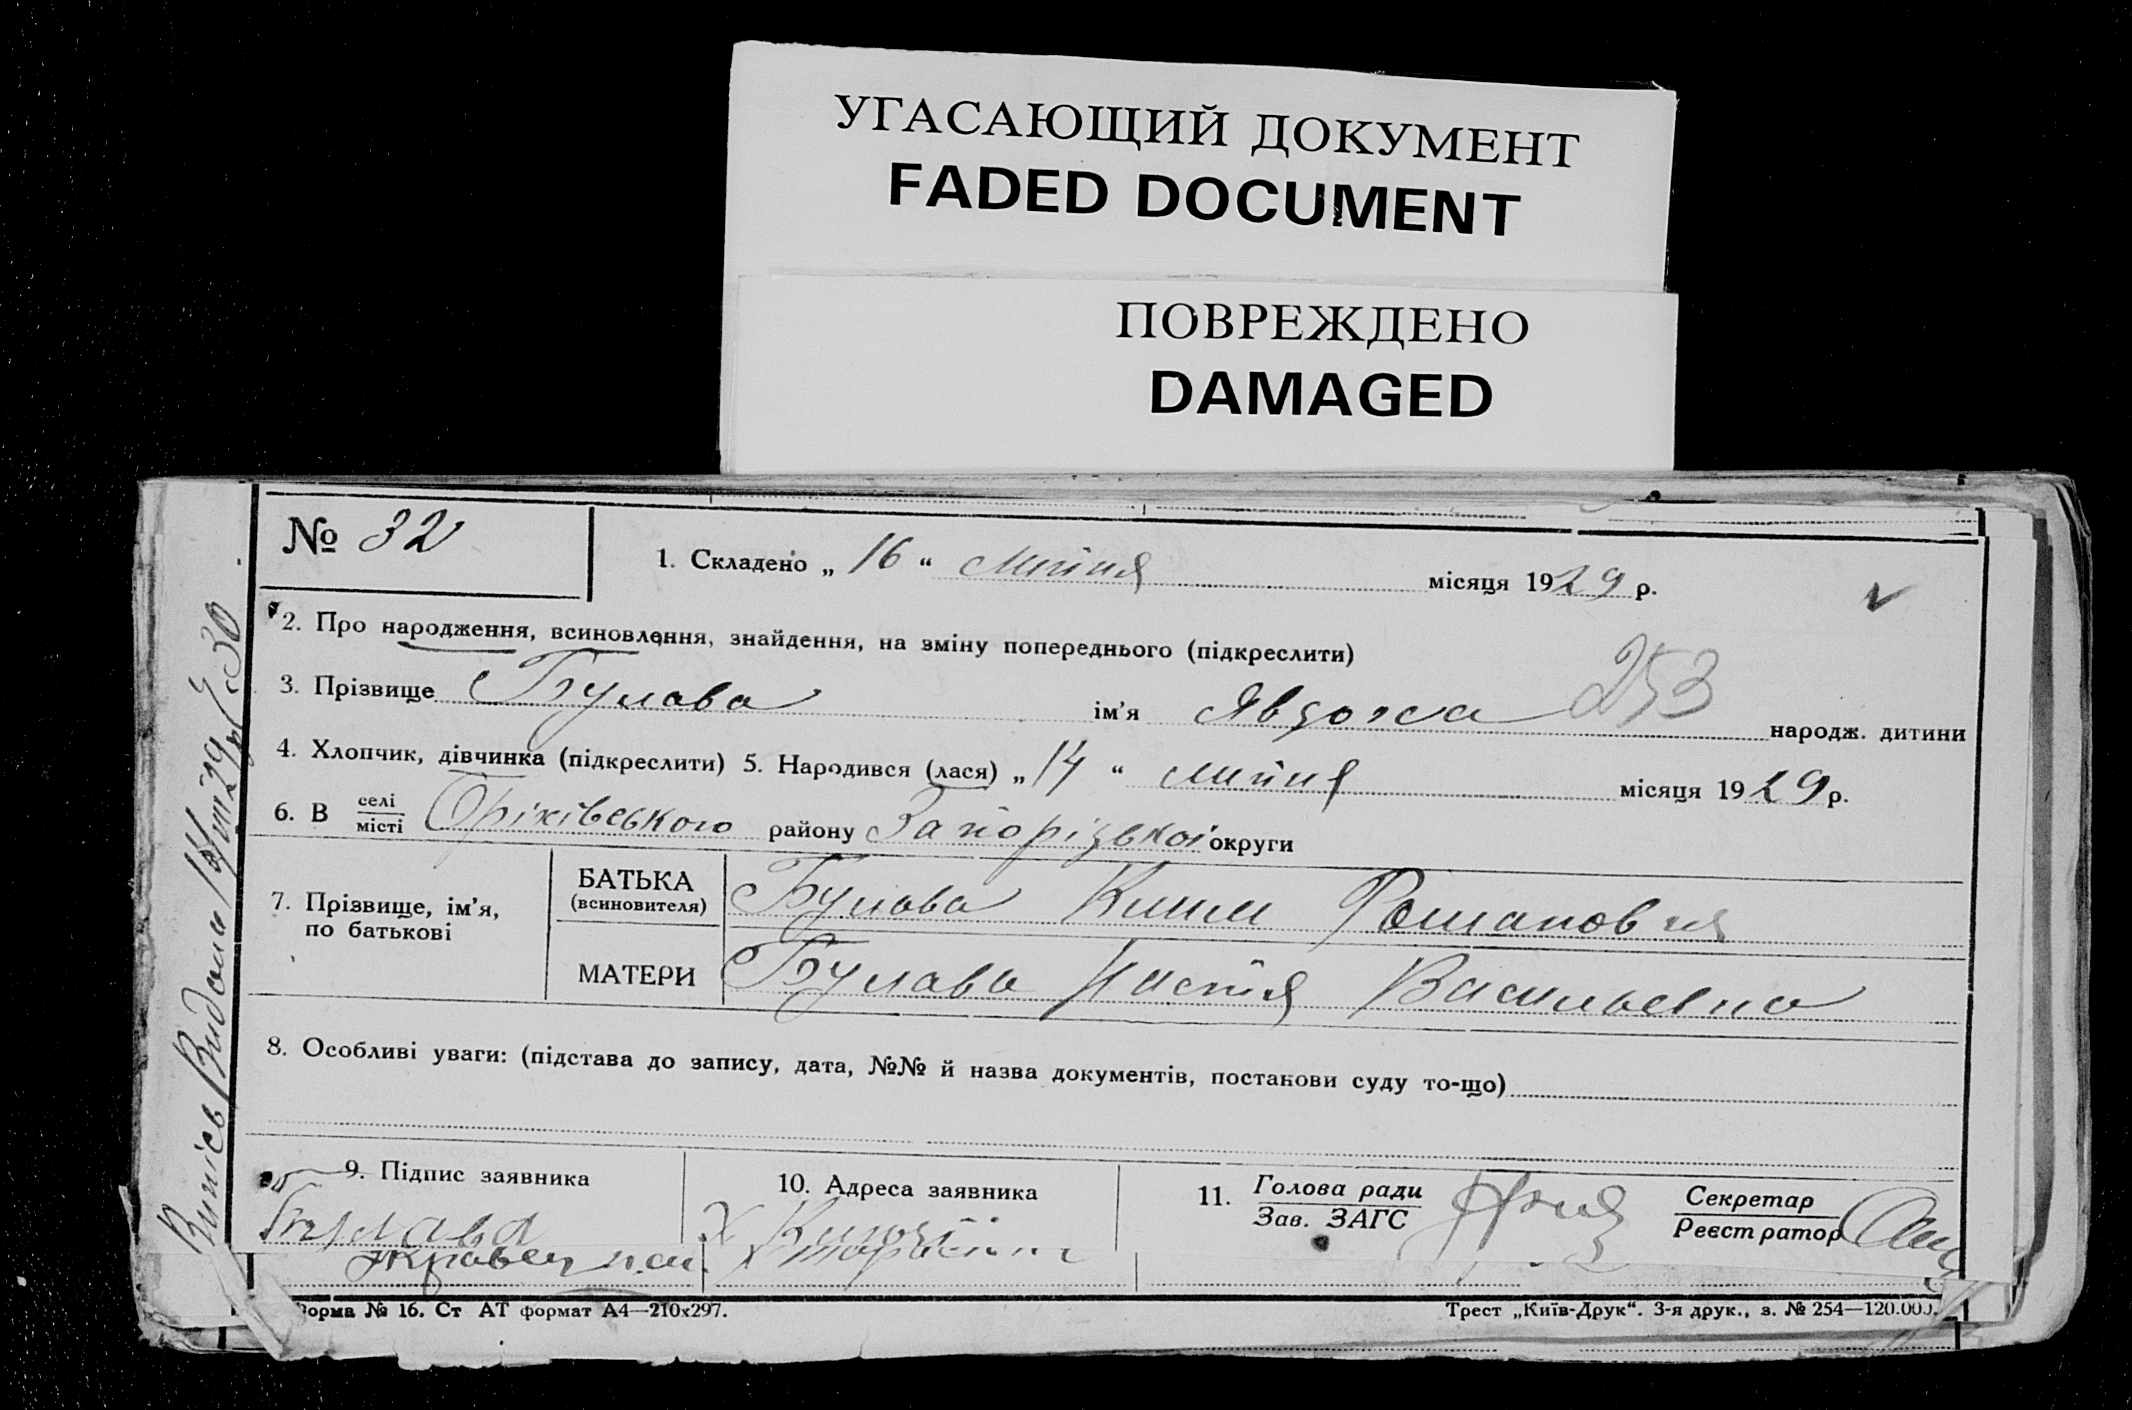 УГАСАЮЩИЙ ДОКУМЕНТ
FADED DOCUMENT
ПОВРЕЖДЕНО
DAMAGED
№ 32
1. Складено „ 16 “ Липня місяця 1929 р.
2. Про народження, всиновлення, знайдення, на зміну попереднього (підкреслити)
253
3. Прізвище Булава ім’я Явдоха народж. дитини
4. Хлопчик, дівчинка (підкреслити) 5. Народився (лася) „ 14 “ липня місяця 1929 р.
6. В селі місті Оріхівського району Запорізької округи
7. Прізвище, ім’я, по батькові
БАТЬКА (всиновителя) Булава Клим Романович
МАТЕРИ Булава Настя Васильевна
8. Особливі уваги: (підстава до запису, дата, №№ й назва документів, постанови суду то-що)
9. Підпис заявника
Булава
10. Адреса заявника
11. Голова ради
Зав. ЗАГС
Секретар
Реєстратор
Форма № 16. Ст АТ формат А4—210х297.
Трест „Київ-Друк“. 3-я друк., з. № 254—120.000.